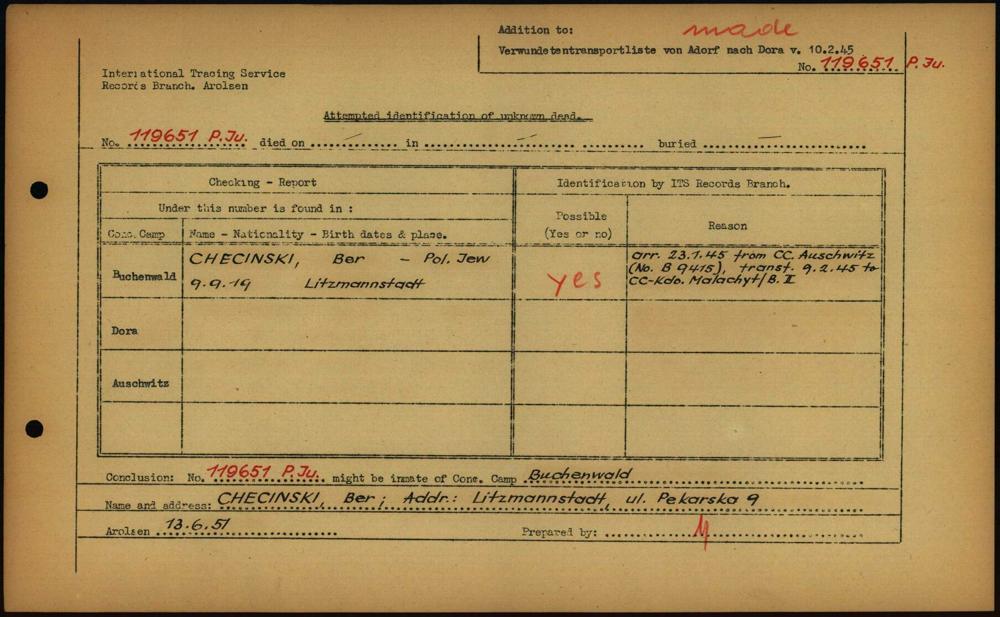 Addition to: made
Verwundetentransportliste von Adorf nach Dora v. 10.2.45
No. 119651 P.Ju.
International Tracing Service
Records Branch. Arolsen
Attempted identification of unknown dead.
No. 119651 P.Ju. died on — in — buried —
Checking - Report
Identification by ITS Records Branch.
Under this number is found in :
Possible
(Yes or no)
Reason
Conc. Camp
Name - Nationality - Birth dates & place.
Buchenwald
CHECINSKI, Ber - Pol. Jew
9.9.19 Litzmannstadt
yes
arr. 23.1.45 from CC. Auschwitz
(No. B 9415), transf. 9.2.45 to
CC-Kdo. Malachyt/B. II
Dora
Auschwitz
Conclusion: No. 119651 P.Ju. might be inmate of Conc. Camp Buchenwald
Name and address: CHECINSKI, Ber; Addr.: Litzmannstadt, ul. Pekarska 9
Arolsen 13.6.51
Prepared by: